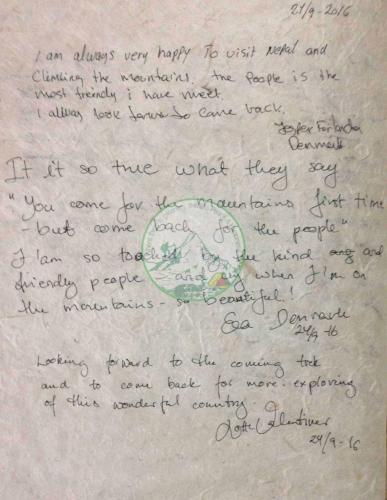 27/9-2016
I am always very happy To visit Nepal and
Climbing the mountains. the People is the
most friendly i have meet.
I allway look forward to Came back.
Denmark
It it so true what they say
"You come for the mountains first time
- but come back for the people"
I'am so touched by the kind and
friendly people - and when I'm on
the mountains - so beautiful!
Denmark
27/9-16
Looking forward to the coming trek
and to come back for more exploring
of this wonderful country.
Lotte
27/9-16